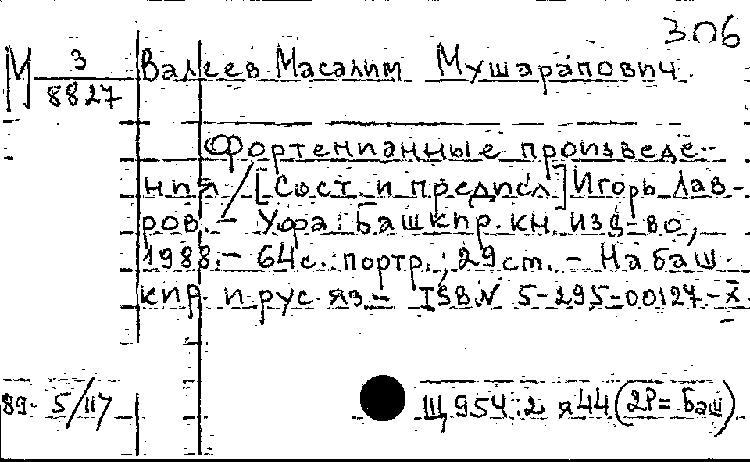 306
М 3/8827
Валеев Масалим Мушарапович.
Фортепианные произведе-
ния / [Сост. и предисл.] Игорь Лав-
ров. – Уфа: Башкир. кн. изд-во,
1988. – 64 с.: портр.; 29 cm. – На баш
кир. и рус. яз. – ISBN 5-295-00127-X
89- 5/117
Щ954.2 я44 (2Р=Баш)